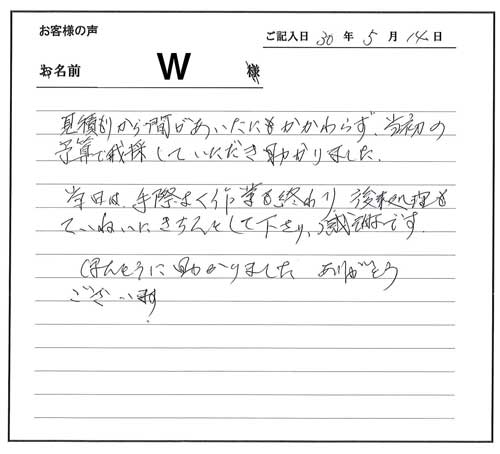 お客様の声
ご記入日 30 年 5 月 14 日
お名前 W 様
見積りから間があいたにもかかわらず、当初の
予算で伐採していただき助かりました。
当日は、手際よく作業を終わり 後末処理も
ていねいにきちんとして下さり、感謝です。
ほんとうに助かりました ありがとう
ございます